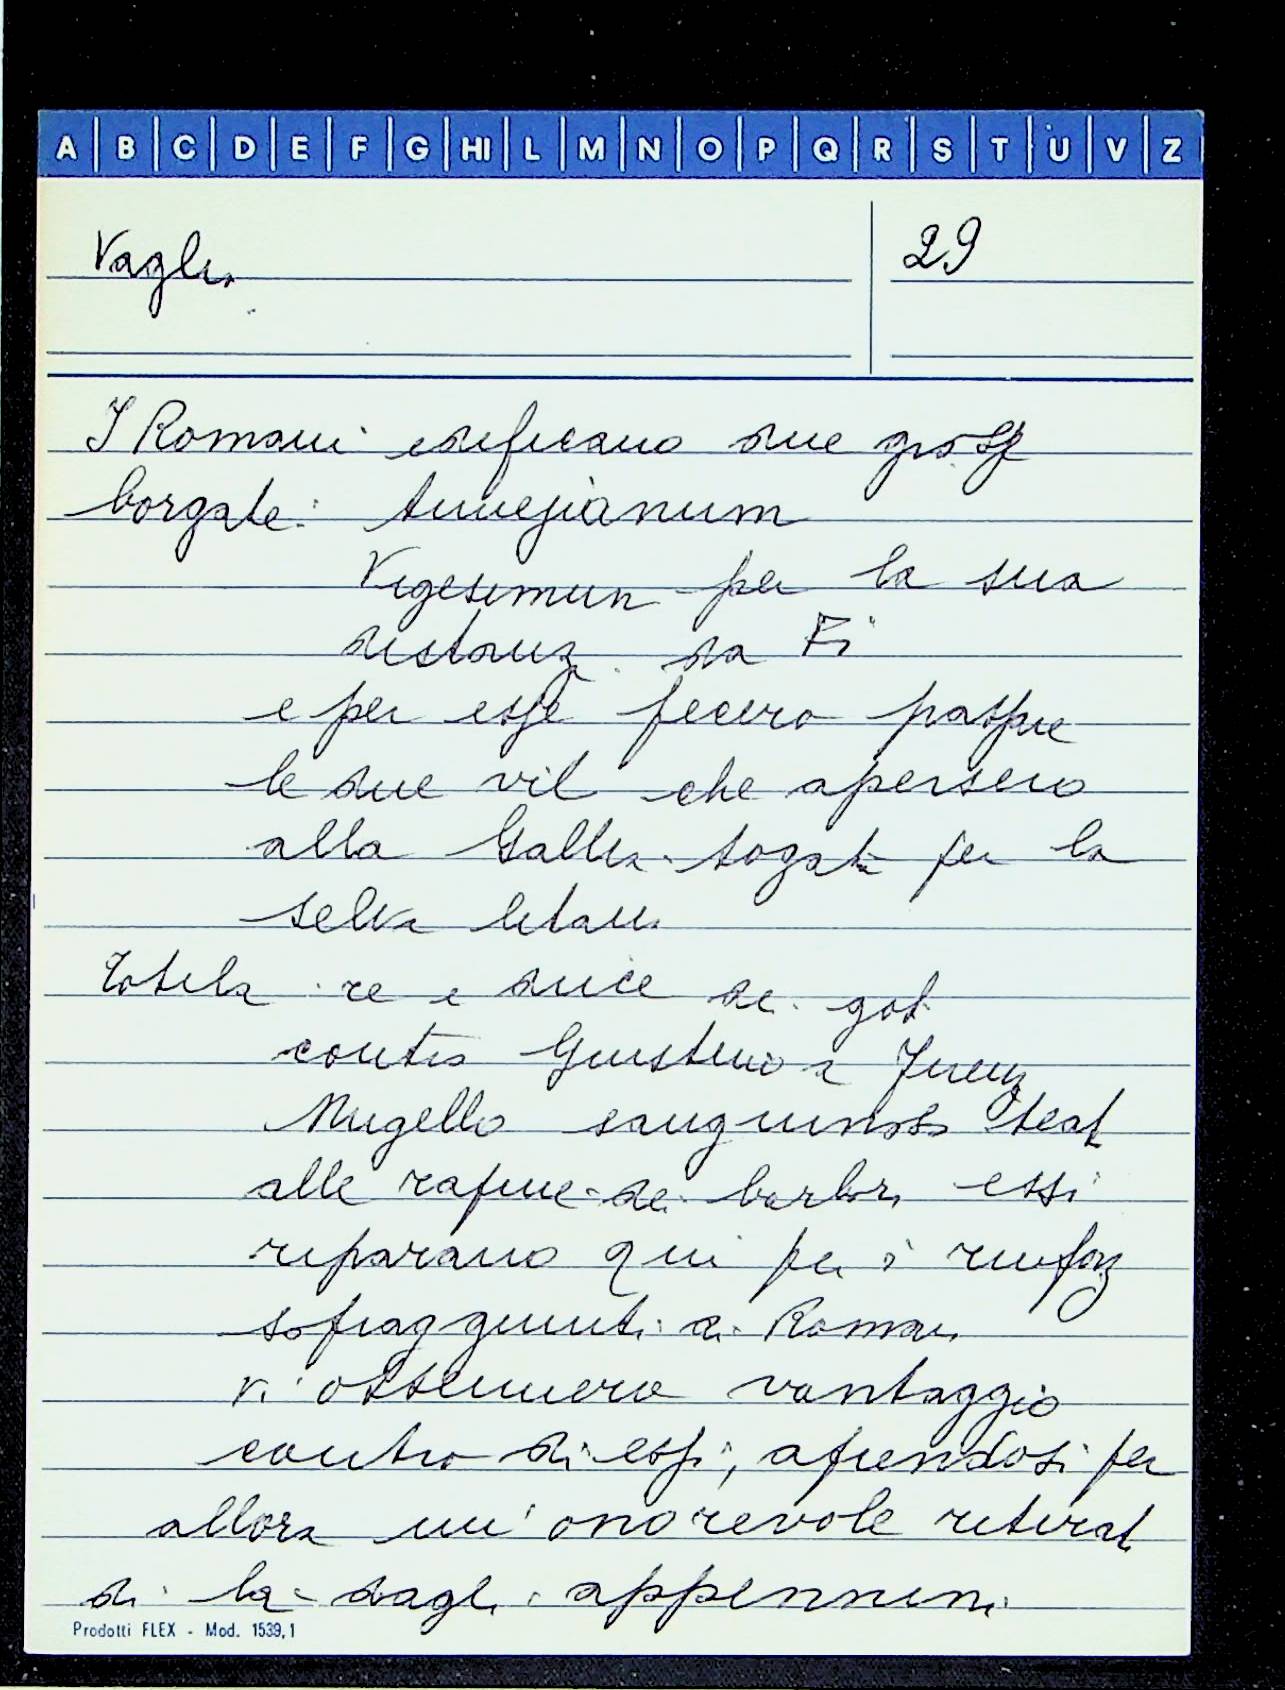 A B C D E F G HI L M N O P Q R S T U V Z
Vaglia 29
I Romani edificano due grosse
borgate: Annejanum
Vigesimum per la sua
distanz da Fi
e per esse fecero passare
le due vie che apersero
alla Gallia togata per la
selva litan
Totila re e duce dei got
contro Giustino a Firenz
Mugello sanguinoso teat
alle rapine dei barbari essi
riparano qui per i rinforz
sopraggiunti ai Romani
vi ottennero vantaggio
contro di essi, aprendosi per
allora un' onorevole ritirat
di là dagli appennini
Prodotti FLEX - Mod. 1539,1